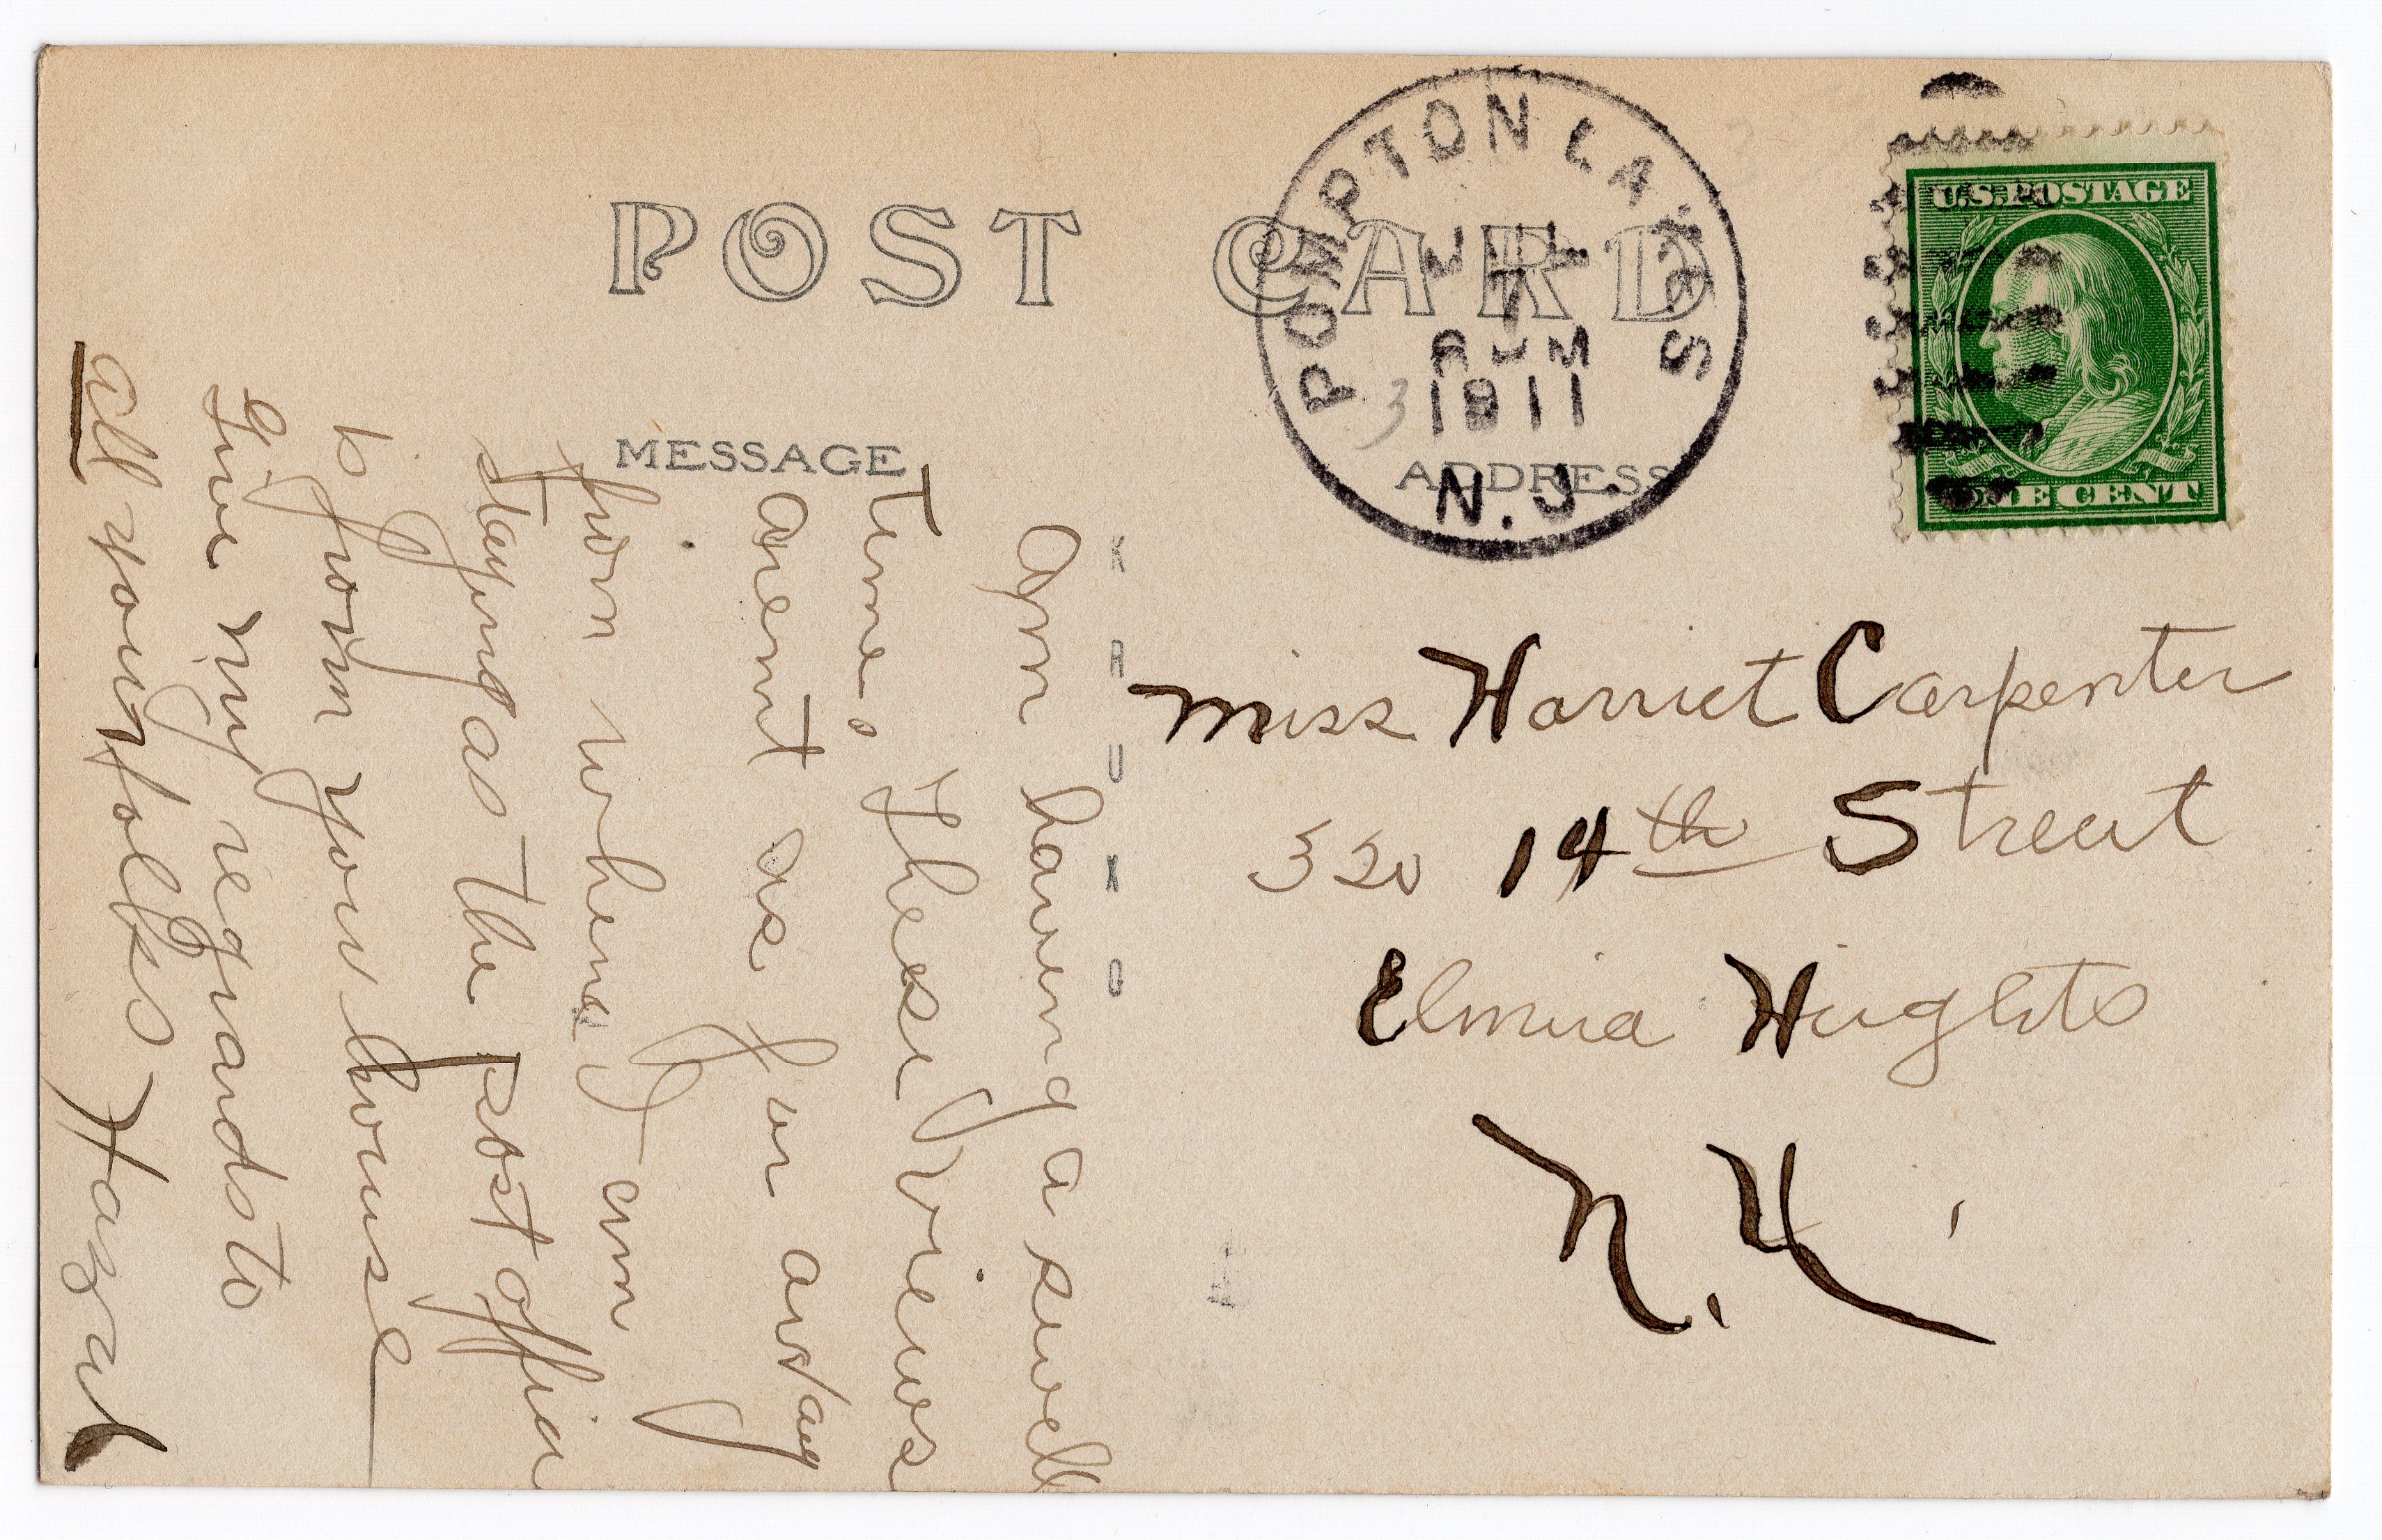 POST CARD
MESSAGE
ADDRESS
POMPTON LAKES
1911
N.J.
U.S. POSTAGE
ONE CENT
K R U X O
Miss Harriet Carpenter
320 14th Street
Elmira Heights
N. Y.
Am having a swell
time. These views
arent as far away
from where I am
staying as the post office
is from your house
Give my regards to
all your folks Hazel